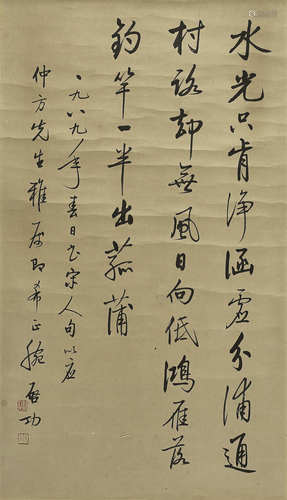 水光只肯净涵虚分浦通
村路却無風日向低鴻雁落
釣竿一半出菰蒲
一九八九年春日书宋人句以应
仲方先生雅属即希正腕
启功